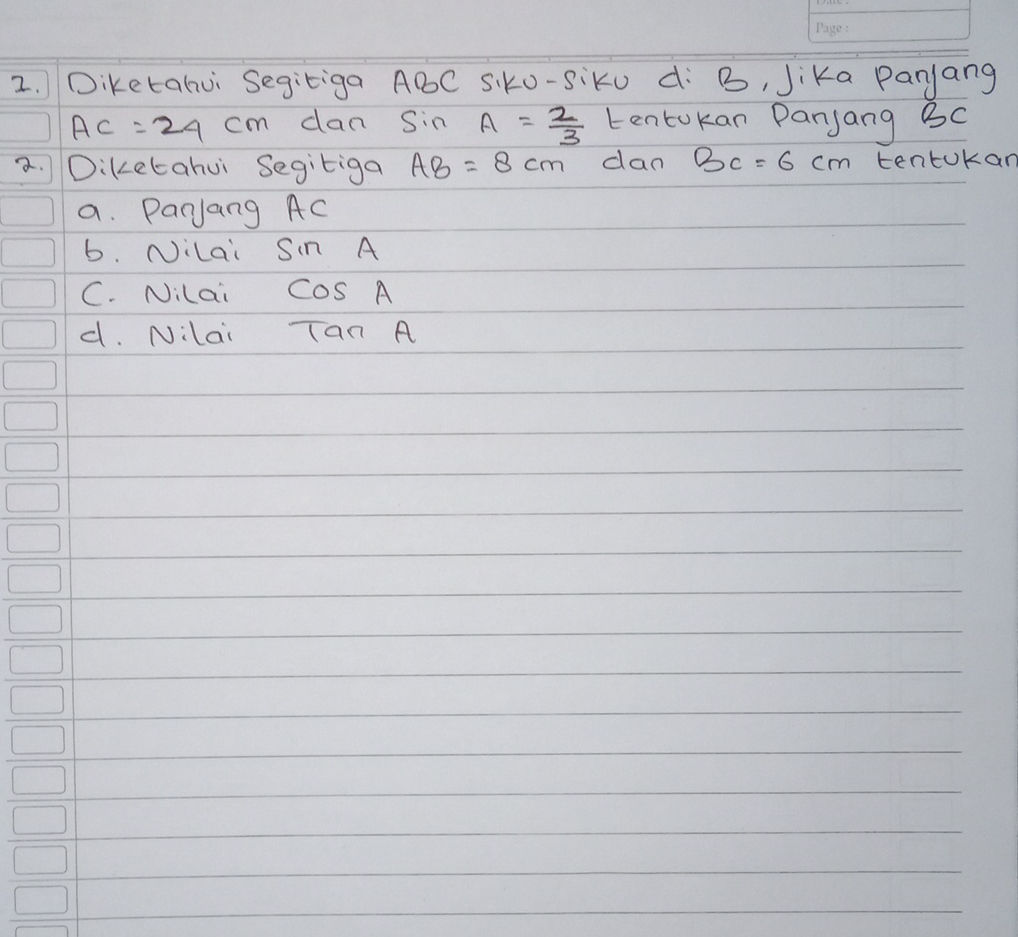 Page :
1. Diketahui Segitiga ABC Siku-Siku di B, Jika Panjang
AC = 24 cm dan Sin A = 2/3 tentukan Panjang BC
2. Diketahui Segitiga AB = 8 cm dan BC = 6 cm tentukan
a. Panjang AC
b. Nilai Sin A
C. Nilai Cos A
d. Nilai Tan A